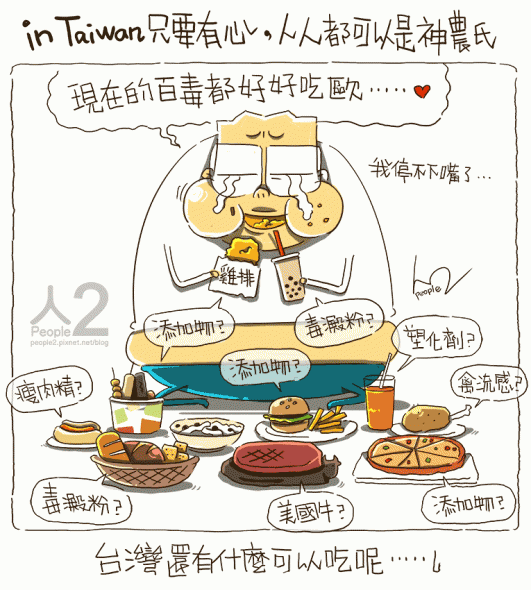 in Taiwan 只要有心，人人都可以是神農氏
現在的百毒都好好吃歐……
我停不下嘴了…
雞排
people2
人2
People
people2.pixnet.net/blog
添加物？
毒澱粉？
塑化劑？
添加物？
瘦肉精？
禽流感？
毒澱粉？
美國牛？
添加物？
台灣還有什麼可以吃呢……